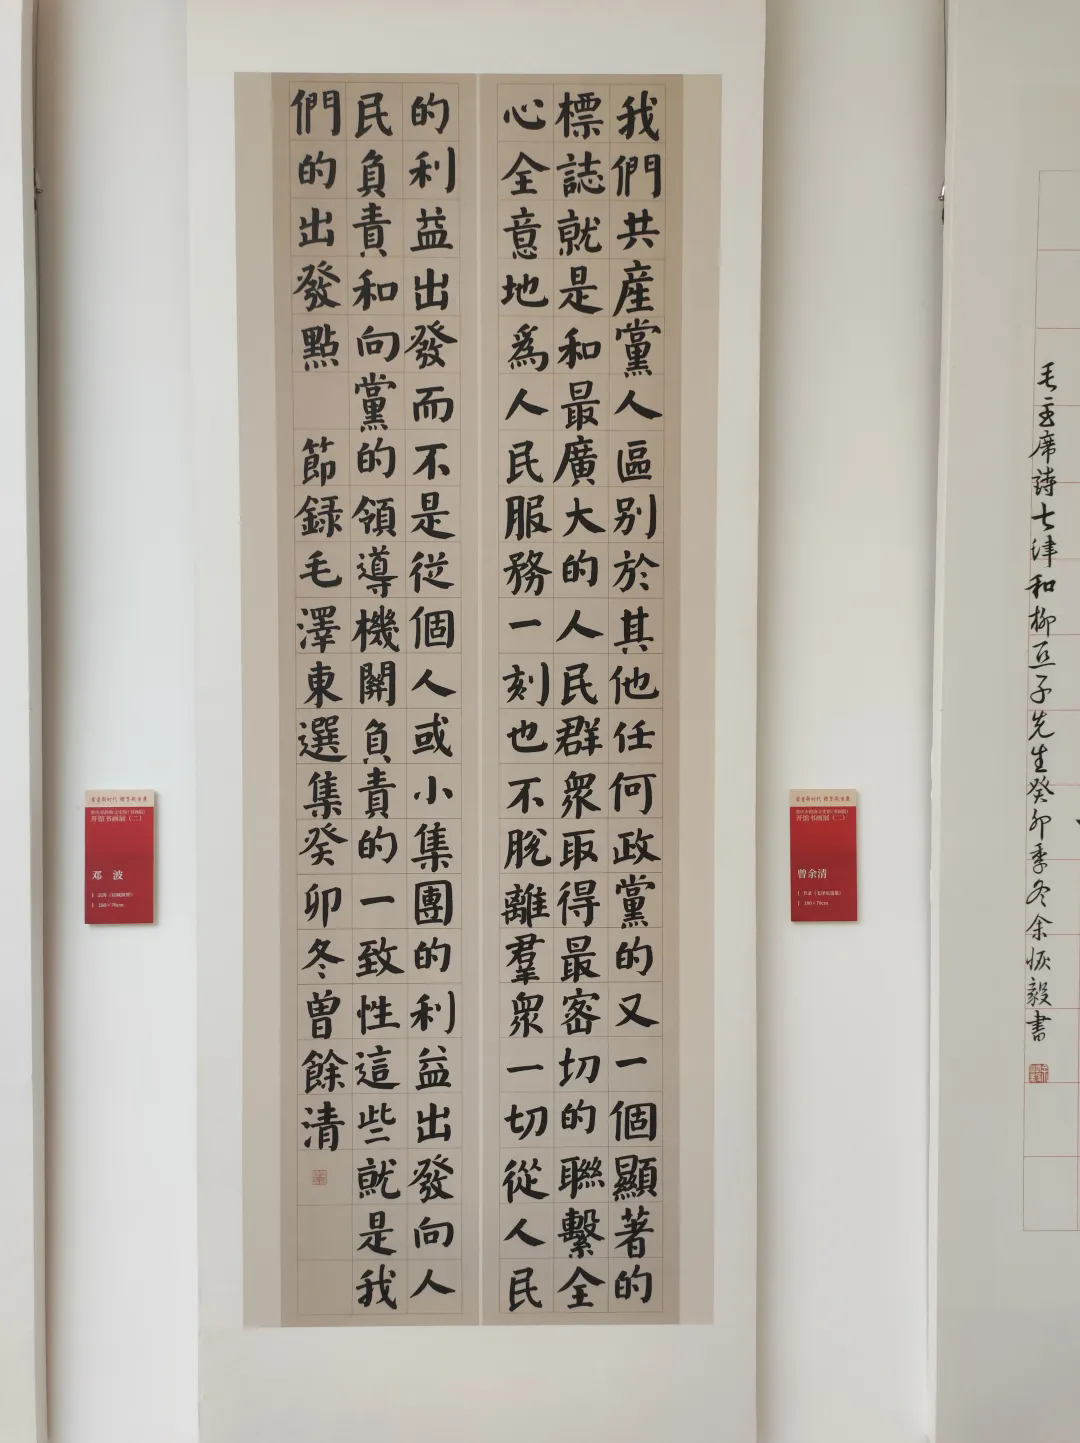 我們共産黨人區别於其他任何政黨的又一個顯著的
標誌就是和最廣大的人民群衆取得最密切的聯繫全
心全意地爲人民服務一刻也不脱離羣衆一切從人民
的利益出發而不是從個人或小集團的利益出發向人
民負責和向黨的領導機關負責的一致性這些就是我
們的出發點 節録毛澤東選集癸卯冬曾餘清
曾余清
180×70cm
毛主席詩七律和柳亞子先生癸卯季冬余恢毅書
邓波
180×70cm